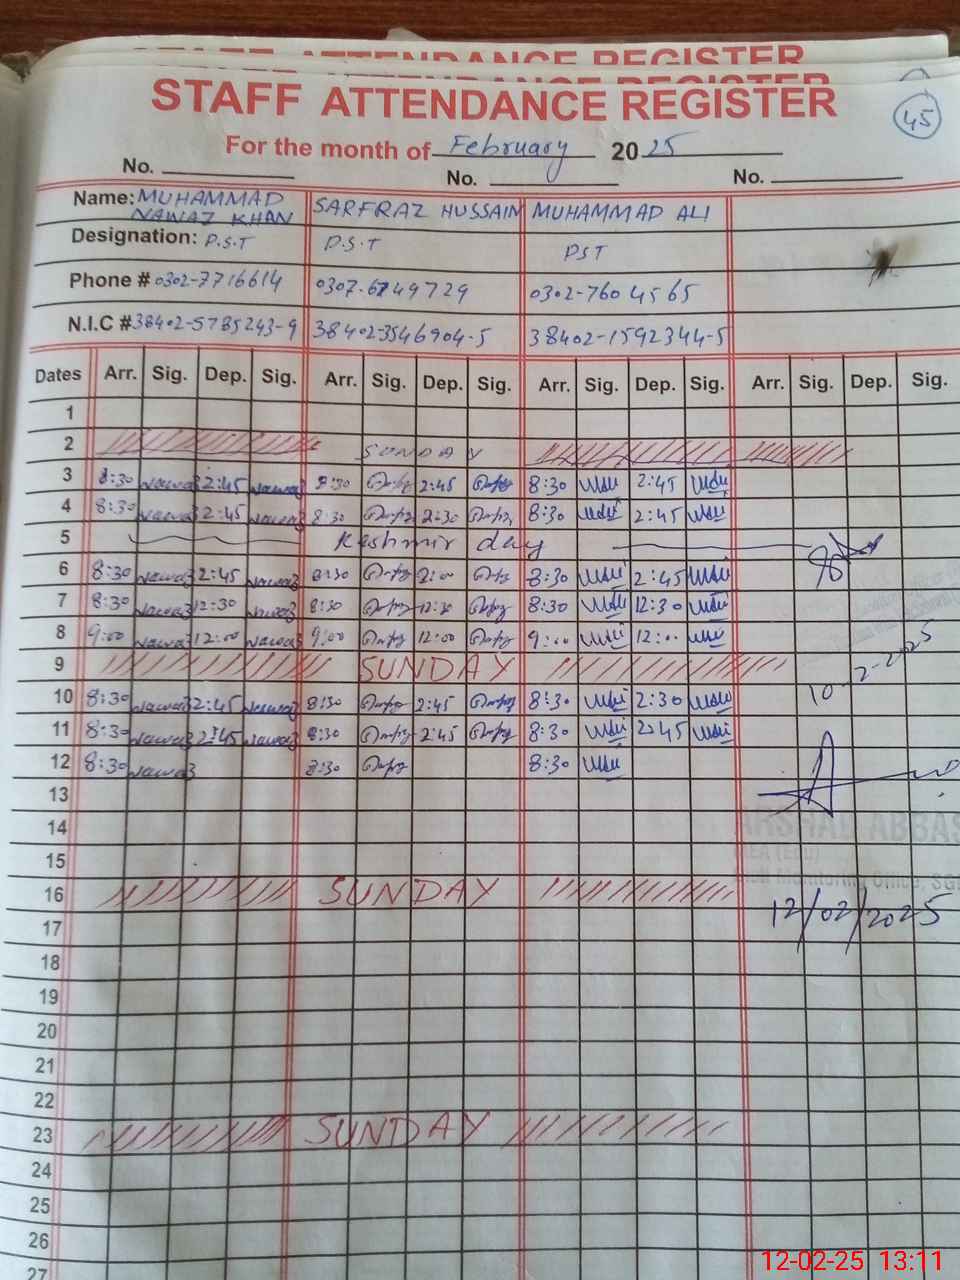 STAFF ATTENDANCE REGISTER
STAFF ATTENDANCE REGISTER
STAFF ATTENDANCE REGISTER
45
For the month of February 2025
No. No. No.
Name: MUHAMMAD NAWAZ KHAN SARFRAZ HUSSAIN MUHAMMAD ALI
Designation: P.S.T P.S.T PST
Phone # 0302-7716614 0307-6749729 0302-7604565
N.I.C # 38402-5785243-9 38402-3546904-5 38402-1592344-5
Dates Arr. Sig. Dep. Sig. Arr. Sig. Dep. Sig. Arr. Sig. Dep. Sig. Arr. Sig. Dep. Sig.
1
2 SUNDAY
3 8:30 Nawaz 2:45 Nawaz 8:30 2:45 8:30 2:45
4 8:30 Nawaz 2:45 Nawaz 8:30 2:30 8:30 2:45
5 Kashmir day
6 8:30 Nawaz 2:45 Nawaz 8:30 8:30 2:45
7 8:30 Nawaz 12:30 Nawaz 8:30 12:30 8:30 12:30
8 9:00 Nawaz 12:00 Nawaz 9:00 12:00 9:00 12:00
9 SUNDAY
10-2-2025
10 8:30 Nawaz 2:45 Nawaz 8:30 2:45 8:30 2:30
11 8:30 Nawaz 2:45 Nawaz 8:30 2:45 8:30 2:45
12 8:30 Nawaz 8:30 8:30
13
14
ARSHAD ABBAS
15
MEA (Edu)
16 SUNDAY
Monitoring Office, SG
12/02/2025
17
18
19
20
21
22
23 SUNDAY
24
25
26
27
12-02-25 13:11